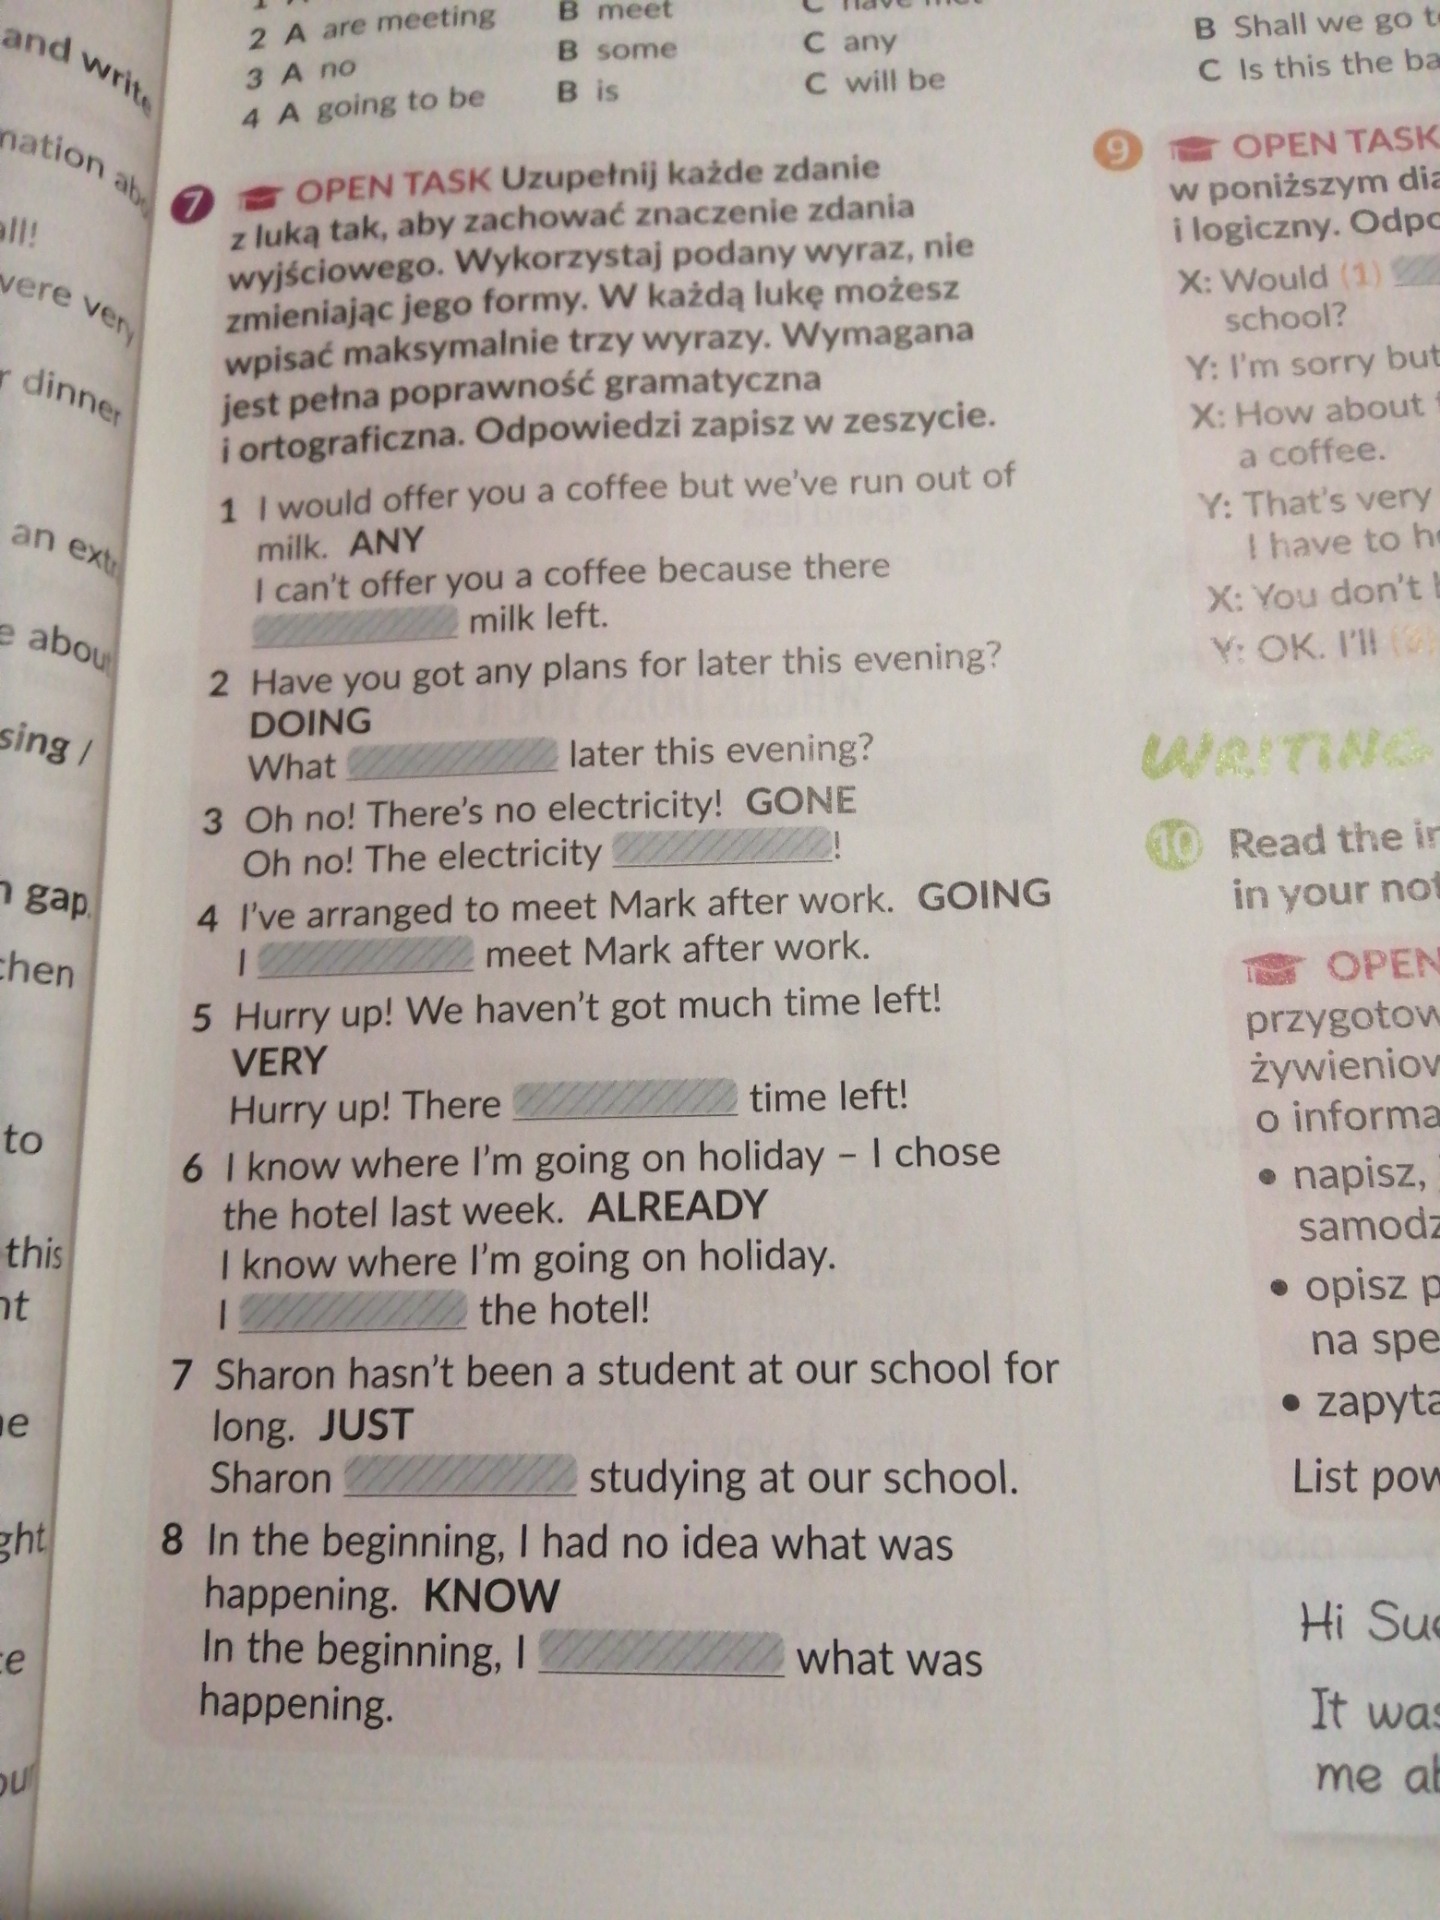 and write
all!
were very
dinner
an
sing /
gap.
to
this
2 A are meeting B meet
3 A no B some C any
4 A going to be B is C will be
7 OPEN TASK Uzupełnij każde zdanie
z luką tak, aby zachować znaczenie zdania
wyjściowego. Wykorzystaj podany wyraz, nie
zmieniając jego formy. W każdą lukę możesz
wpisać maksymalnie trzy wyrazy. Wymagana
jest pełna poprawność gramatyczna
i ortograficzna. Odpowiedzi zapisz w zeszycie.
1 I would offer you a coffee but we've run out of
milk. ANY
I can't offer you a coffee because there
milk left.
2 Have you got any plans for later this evening?
DOING
What later this evening?
3 Oh no! There's no electricity! GONE
Oh no! The electricity !
4 I've arranged to meet Mark after work. GOING
I meet Mark after work.
5 Hurry up! We haven't got much time left!
VERY
Hurry up! There time left!
6 I know where I'm going on holiday – I chose
the hotel last week. ALREADY
I know where I'm going on holiday.
I the hotel!
7 Sharon hasn't been a student at our school for
long. JUST
Sharon studying at our school.
8 In the beginning, I had no idea what was
happening. KNOW
In the beginning, I what was
happening.
B Shall we go
C Is this the
9 OPEN TASK
w poniższym
i logiczny.
X: Would (1)
school?
Y: I'm sorry but
X: How about
a coffee.
Y: That's very
I have to
X: You don't
Y: OK. I'll
WRITING
10 Read the
in your
OPEN
o
• napisz,
• opisz
na
•
List
Hi
It
me